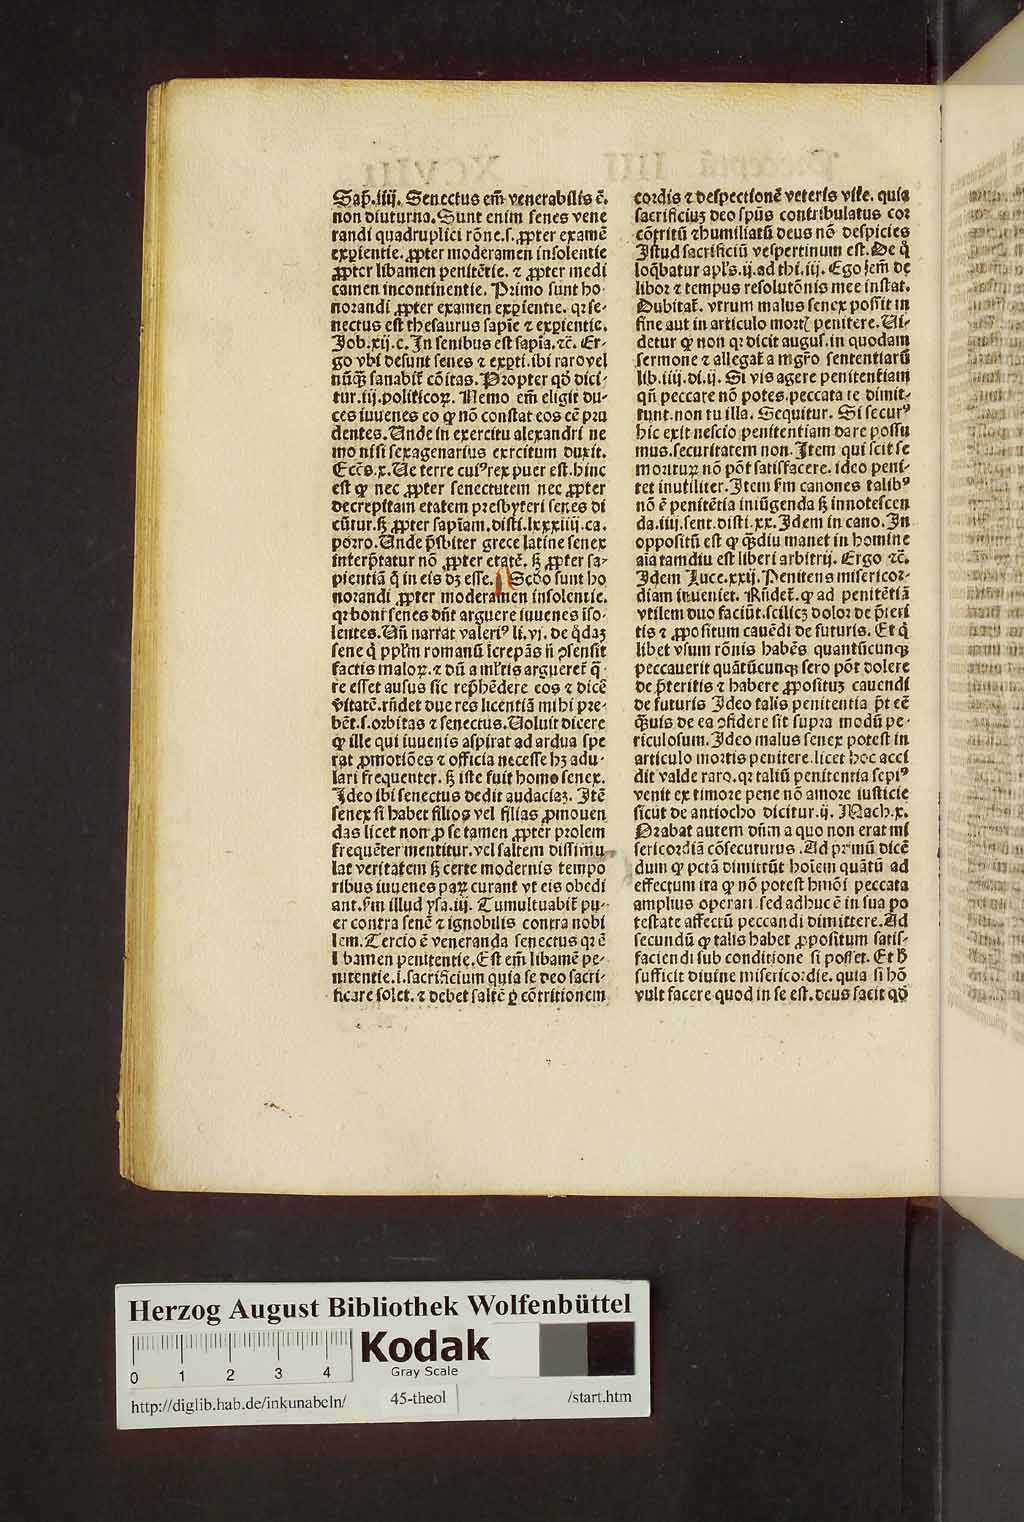 Sap̃.iiij. Senectus em̃ venerabilis ẽ.
non diuturna. Sunt enim senes vene
randi quadruplici rõne.s.ꝓpter examẽ
exꝑientie.ꝓpter moderamen insolentie
ꝓpter libamen penitẽtie. ⁊ ꝓpter medi
camen incontinentie. Primo sunt ho-
norandi ꝓpter examen exꝑientie. qꝛ se-
nectus est thesaurus sapĩe ⁊ exꝑientie.
Job.xij.c. In senibus est sapĩa.⁊c̃. Er-
go vbi desunt senes ⁊ exꝑti.ibi raro vel
nũqꝫ sanabit̃ cõitas. Propter qd̃ dici-
tur.iij.politicoꝝ. Nemo em̃ eligit du-
ces iuuenes eo ꝙ nõ constat eos eẽ pru
dentes. Unde in exercitu alexandri ne
mo nisi sexagenarius exrcitum duxit.
Eccẽs.x. Ue terre cui⁹ rex puer est. hinc
est ꝙ nec ꝓpter senectutem nec ꝓpter
decrepitam etatem presbyteri senes di
cũtur.sꝫ ꝓpter sapĩam.disti.lxxxiiij.ca.
porro. Unde p̃sbiter grece latine senex
interp̃tatur nõ ꝓpter etatẽ. sꝫ ꝓpter sa-
pientiã q̃ in eis dꝫ esse. Scd̃o sunt ho
norandi ꝓpter moderamen insolentie.
qꝛ boni senes dñt arguere iuuenes ĩso-
lentes. Uñ narrat valeri⁹ li.vj. de q̃daꝫ
sene q̃ ppl̃m romanũ ĩcrepãs ñ ꝯsensit
factis maloꝝ. ⁊ dũ a ml̃tis argueret̃ q̃-
re esset ausus sic rep̃hẽdere eos ⁊ dicẽ
ṽitatẽ.rñdet due res licentiã mihi pre-
bẽt.s.orbitas ⁊ senectus. Uoluit dicere
ꝙ ille qui iuuenis aspirat ad ardua spe
rat ꝓmotiões ⁊ officia necesse hꝫ adu-
lari frequenter. sꝫ iste fuit homo senex.
Ideo ibi senectus dedit audaciaꝫ. Itẽ
senex si habet filios vel filias ꝓmouen
das licet non ꝓ se tamen ꝓpter prolem
frequẽter mentitur. vel saltem dissimu
lat veritatem sꝫ certe modernis tempo
ribus iuuenes paꝝ curant vt eis obedi
ant. sm̃ illud ysa.iij. Tumultuabit̃ pu-
er contra senẽ ⁊ ignobilis contra nobi
lem. Tercio ẽ veneranda senectus qꝛ ẽ
l bamen penitentie. Est em̃ libamẽ pe-
nitentie.i.sacrificium quia se deo sacri-
ficare solet. ⁊ debet saltẽ ꝑ cõtritionem
cordis ⁊ despectionẽ veteris vite. quia
sacrificiuꝫ deo spũs contribulatus cor
cõtritũ ⁊ humiliatũ deus nõ despicies
Istud sacrificiũ vespertinum est. De q̃
loq̃batur apl̃s.ij.ad thi.iij. Ego iem̃ de
libor ⁊ tempus resolutõnis mee instat.
Dubitat̃. vtrum malus senex possit in
fine aut in articulo mortꝭ penitere. Ui-
detur ꝙ non qꝛ dicit augus. in quodam
sermone ⁊ allegat̃ a mgr̃o sententiarũ
lib.iiij.di.ij. Si vis agere penitentiam
qñ peccare nõ potes. peccata te dimit-
tunt. non tu illa. Sequitur. Si secur⁹
hic exit nescio penitentiam dare possu
mus. securitatem non. Item qui scit se
moriturꝝ nõ põt satisfacere. ideo peni-
tet inutiliter. Item sm̃ canones talib⁹
nõ ẽ penitẽtia iniũgenda sꝫ innotescen
da.iiij.sent.disti.xx. Idem in cano. In
oppositũ est ꝙ qꝫdiu manet in homine
aĩa tamdiu est liberi arbitrij. Ergo ⁊c̃.
Idem Luce.xxij. Penitens misericor-
diam inueniet. Rñdet̃. ꝙ ad penitẽtiã
vtilem duo faciũt. scilicꝫ dolor de p̃teri
tis ⁊ ꝓpositum cauẽdi de futuris. Et q̃
libet vsum rõnis habẽs quantũcunqꝫ
peccauerit quãtũcunqꝫ sero põt dolere
de p̃teritis ⁊ habere ꝓpositũꝫ cauendi
de futuris Ideo talis penitentia p̃t eẽ
q̃uis de ea ꝯfidere sit supra modũ pe-
riculosum. Ideo malus senex potest in
articulo mortis penitere. licet hoc acci
dit valde raro. qꝛ taliũ penitentia sepi⁹
venit ex timore pene nõ amore iusticie
sicut de antiocho dicitur.ij. Mach.x.
Orabat autem dñm a quo non erat mi
sericordiã cõsecuturus. Ad primũ dicẽ
dum ꝙ pctã dimittũt hoĩem quãtũ ad
effectum ita ꝙ nõ potest hmõi peccata
amplius operari. sed adhuc ẽ in sua po
testate affectũ peccandi dimittere. Ad
secundũ ꝙ talis habet ꝓpositum satis-
faciendi sub conditione si posset. Et h̃
sufficit diuine misericordie. quia si hõ
vult facere quod in se est. deus facit qd̃
Herzog August Bibliothek Wolfenbüttel
0 1 2 3 4
Kodak
Gray Scale
http://diglib.hab.de/inkunabeln/ 45-theol /start.htm